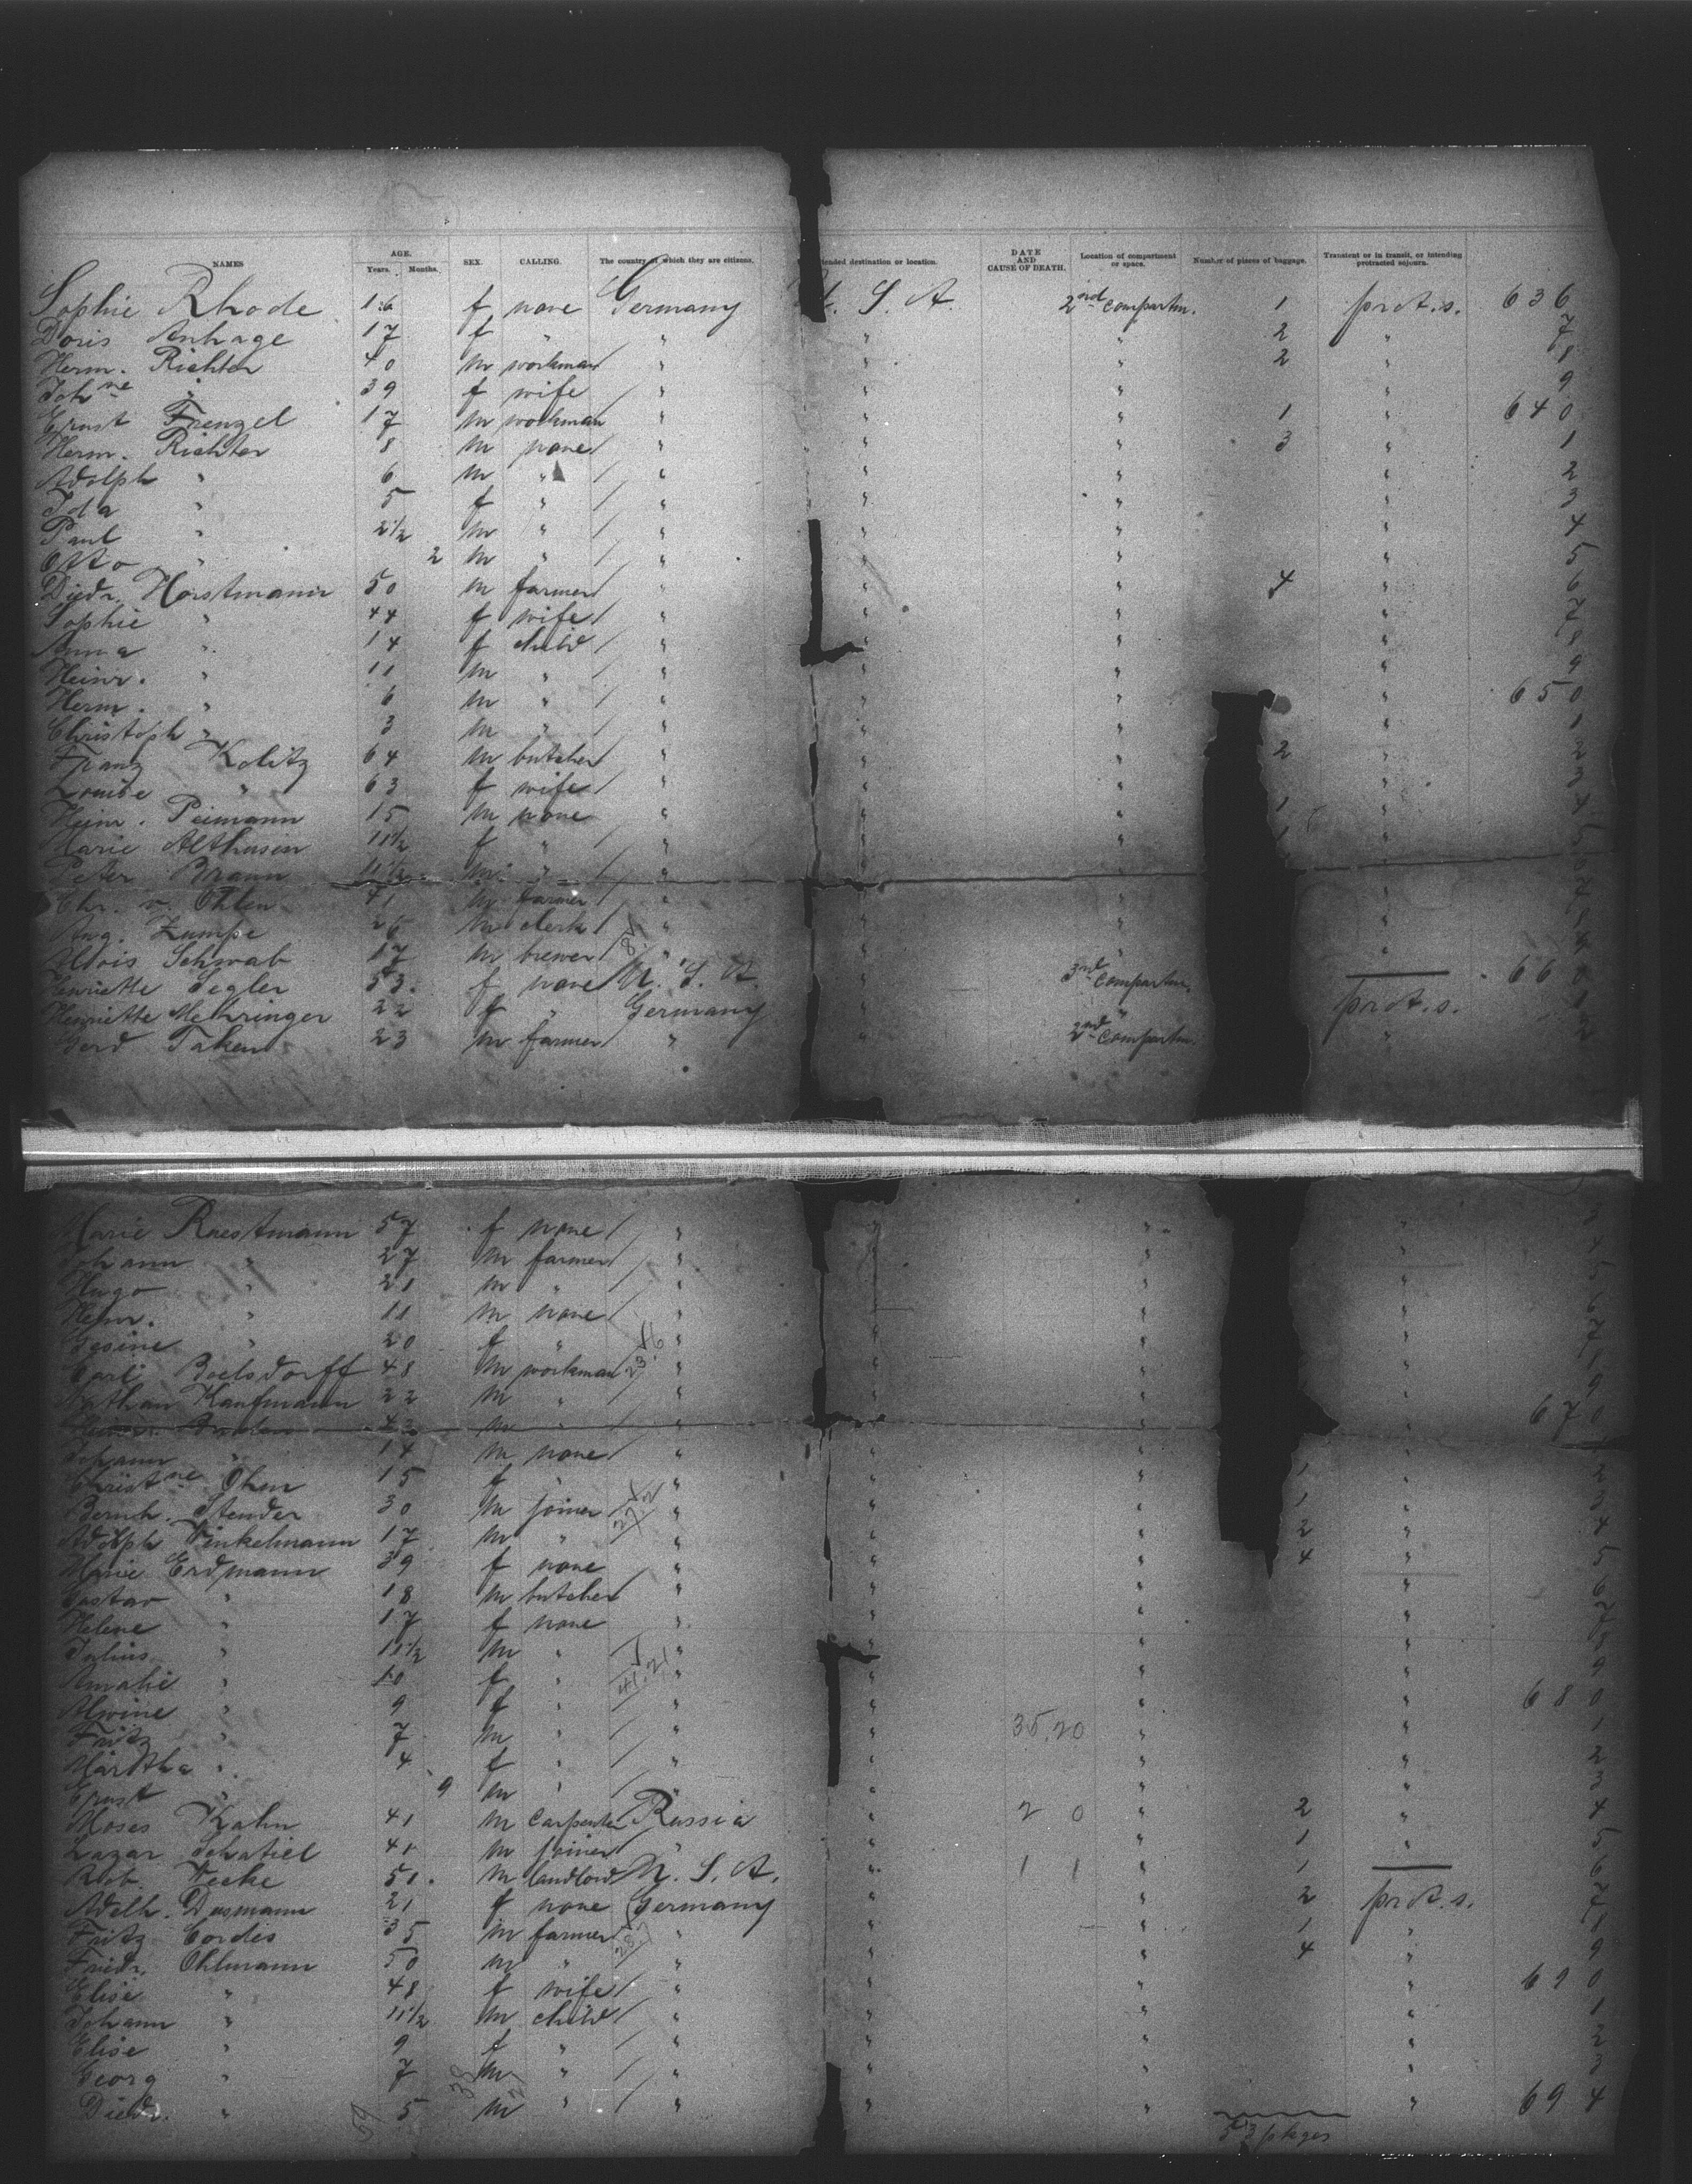 NAMES AGE. Years. Months. SEX. CALLING. The country of which they are citizens. tended destination or location. DATE AND CAUSE OF DEATH. Location of compartment or space. Number of pieces of baggage. Transient or in transit, or intending protracted sojourn.
Sophie Rhode 16 f none Germany U. S. A. 2nd compartm. 1 prot.s. 636
Doris Anhage 17 f " " " " 2 " 7
Herm. Richter 40 m workman " " " 2 " 8
Johne " 39 f wife " " " " 9
Ernst Frenzel 17 m workman " " " 1 " 640
Herm. Richter 8 m none " " " 3 " 1
Adolph " 6 m " " " " " 2
Ida " 5 f " " " " " 3
Paul " 2 1/2 m " " " " " 4
Otto " 2 m " " " " " 5
Diedr. Horstmann 50 m farmer " " " 4 " 6
Sophie " 44 f wife " " " " 7
Anna " 14 f child " " " " 8
Heinr. " 11 m " " " " " 9
Herm. " 6 m " " " " " 650
Christoph " 3 m " " " " " 1
Franz Kolitz 64 m butcher " " " 2 " 2
Louise " 63 f wife " " " " 3
Heinr. Peimann 15 m none " " " 1 " 4
Marie Althusen 11 1/2 f " " " " 1 " 5
Peter Braun 11 1/2 m " " " " " 6
Chr. v. Ohlen 41 m farmer " " " " 7
Aug. Zumpe 26 m clerk " " " " 8
Alois Schwab 17 m brewer " " " " 9
Henriette Segler 53. f none U. S. A. " 3rd compartm. — 66
Henriette Mehringer 22 f " Germany " " prot.s. 1
Gerd Taken 23 m farmer " " 2nd compartm. " 2
Marie Raestmann 57 f none " " " " 3
Johann " 27 m farmer " " " " 4
Hugo " 21 m " " " " " 5
Heinr. " 11 m none " " " " 6
Gesine " 20 f " " " " " 7
Carl Boelsdorff 48 m workman " " " " 8
Nathan Kaufmann 22 m " " " " " 9
43 m " " " " 670
Johann " 14 m none " " " " 1
Christne Ohm 15 f " " " " 1 " 2
Bernh. Stender 30 m joiner " " " 1 " 3
Adolph Winkelmann 17 m " " " " 2 " 4
Marie Erdmann 39 f none " " " 4 " 5
Gustav " 18 m butcher " " " " 6
Helene " 17 f none " " " " 7
Julius " 11 1/2 m " " " " " 8
Amalie " 10 f " " " " " 9
Alwine " 9 f " " " " " 680
Fritz " 7 m " " " 35,20 " " 1
Martha " 4 f " " " " " 2
Ernst " 9 m " " " " " 3
Moses Kahn 41 m carpenter Russia " 20 " 2 " 4
Lazar Schatiel 41 m joiner " " " 1 " 5
Rob. Weske 51. m landlord U. S. A. " 11 " 1 — 6
Adelh. Dusmann 21 f none Germany " " 2 prot.s. 7
Fritz Cordes 35 m farmer " " " 1 " 8
Friedr. Ohlmann 50 m " " " " 4 " 9
Elise " 48 f wife " " " " 690
Johann " 11 1/2 m child " " " " 1
Elise " 9 f " " " " " 2
Georg " 7 m " " " " " 3
Diedr. " 5 m " " " " " 694
59 38 53 pkges